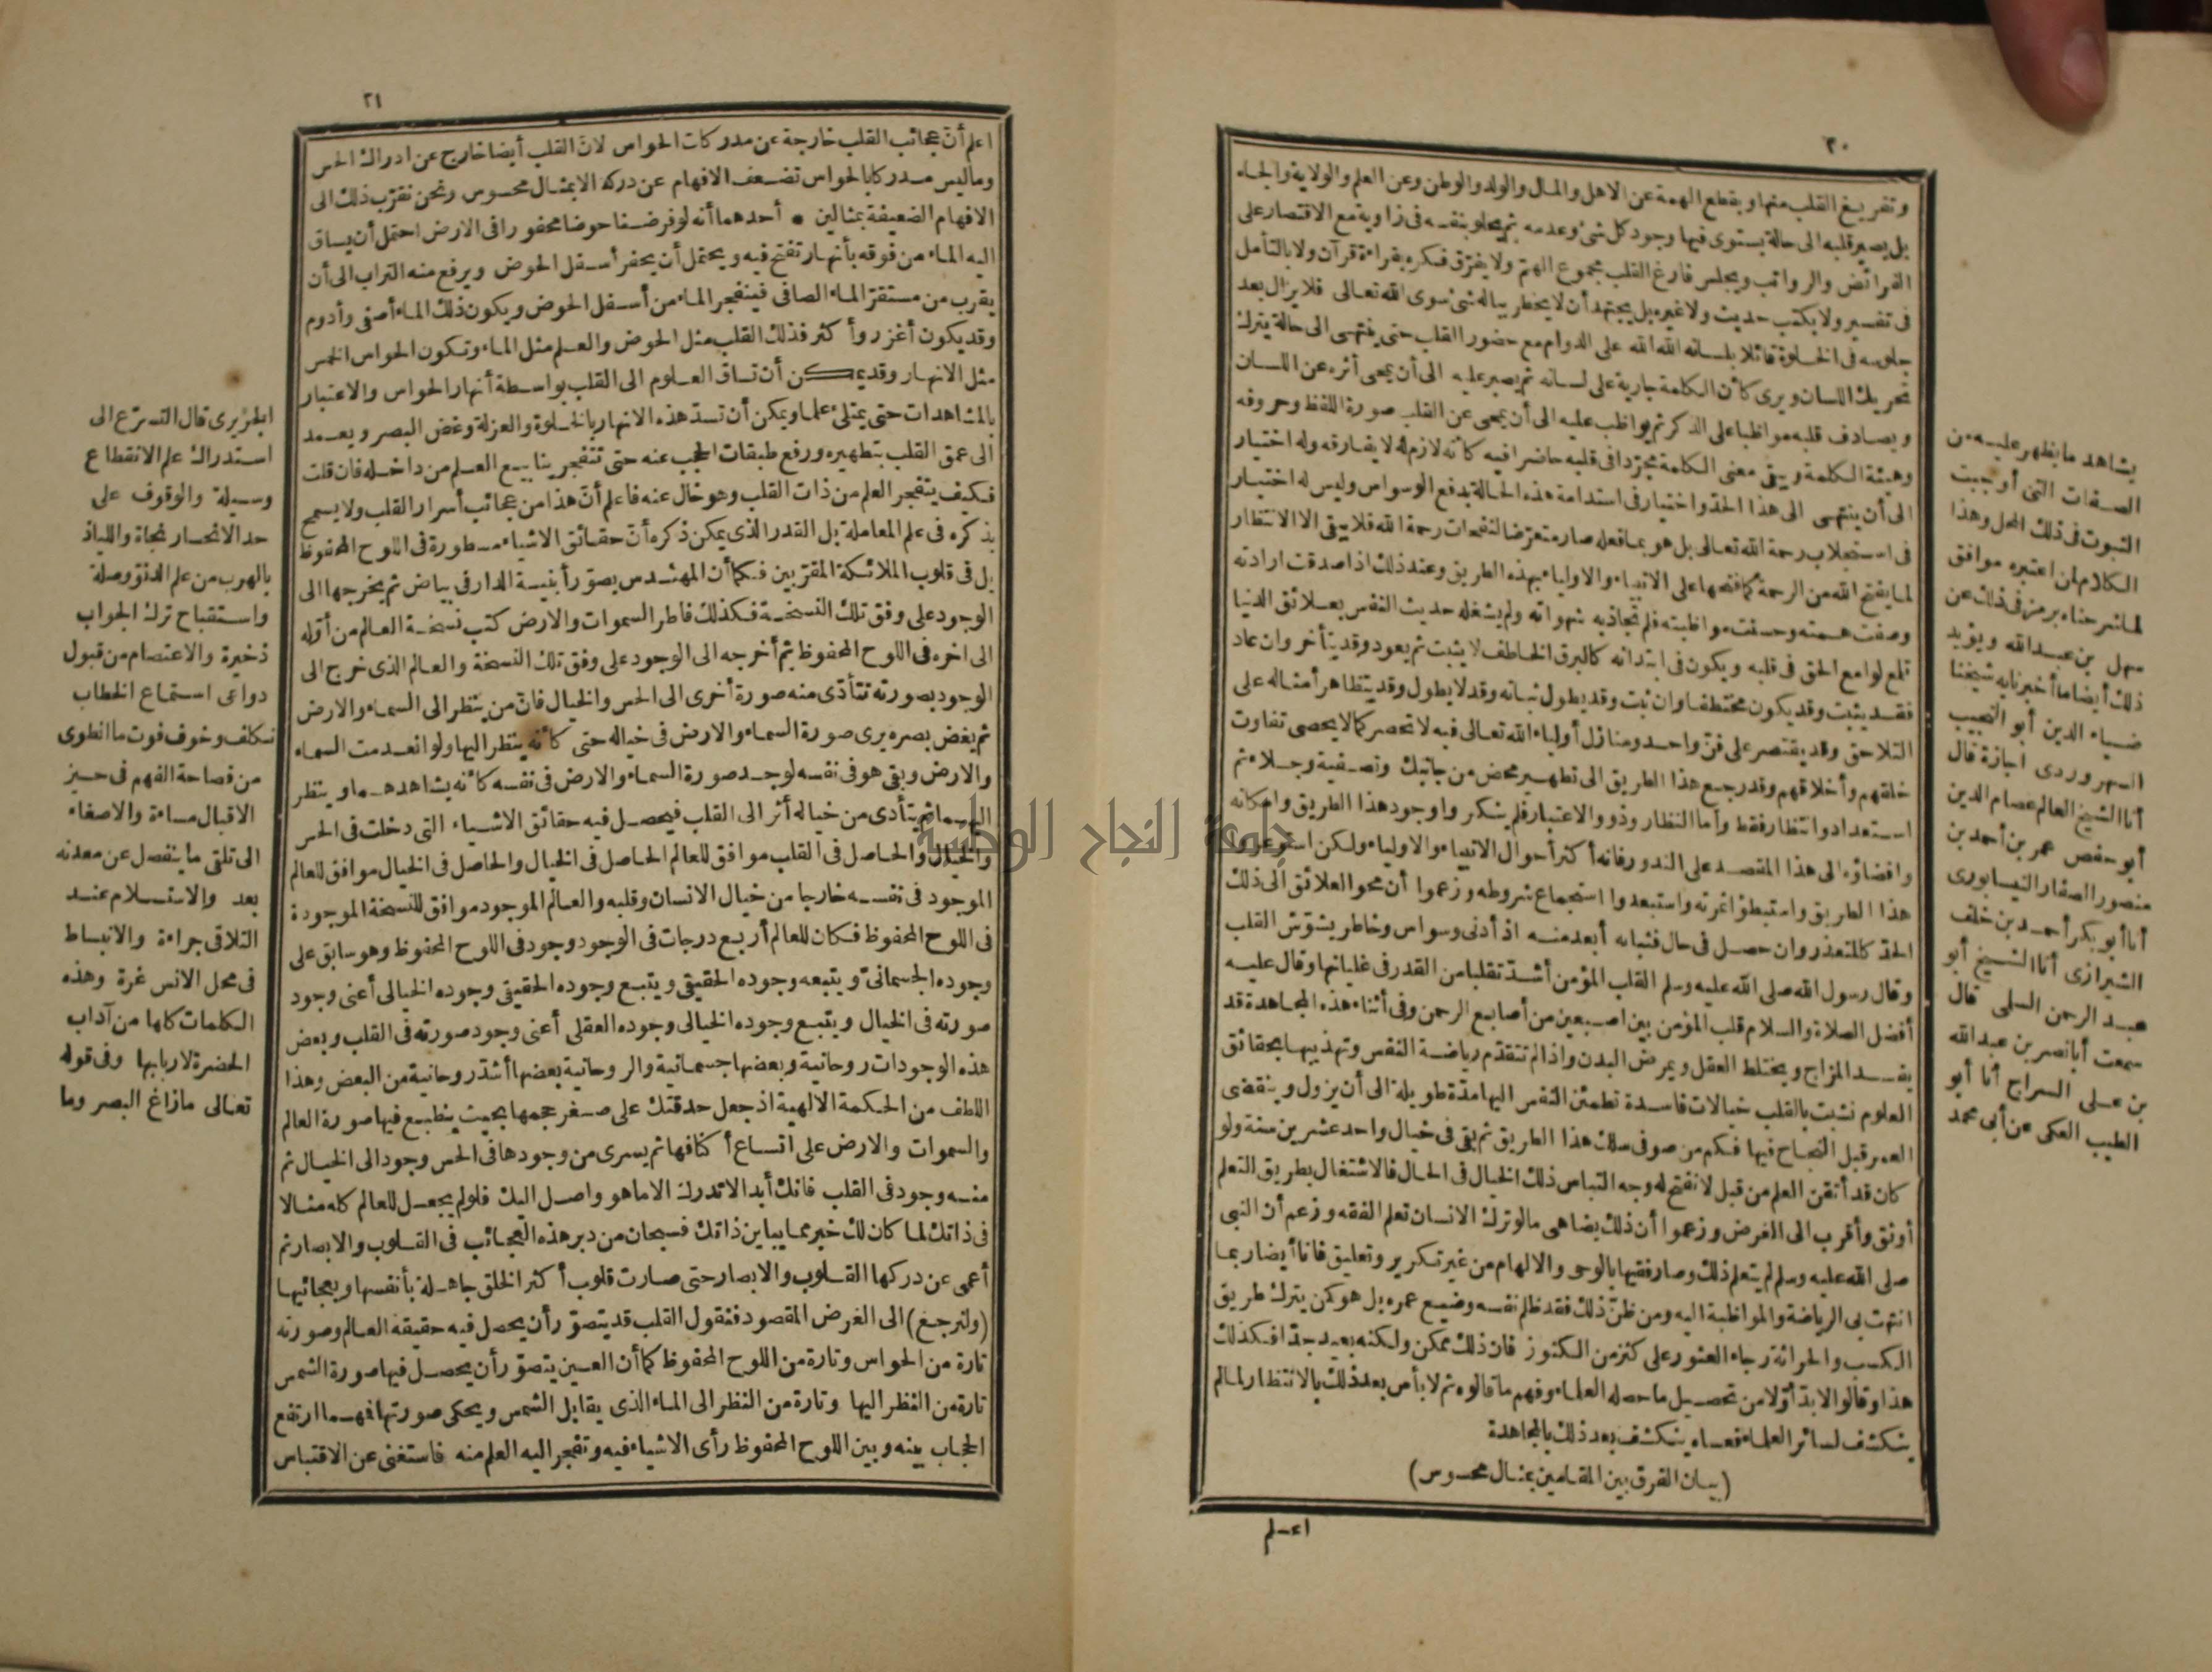 ٢٠
وتفريغ القلب منها وبقطع الهمة عن الاهل والمال والولد والوطن وعن العلم والولاية والجاه
بل يصير قلبه الى حالة يستوى فيها وجود كل شئ وعدمه ثم يخلو بنفسه فى زاوية مع الاقتصار على
الفرائض والرواتب ويجلس فارغ القلب مجموع الهم ولا يفرّق فكره بقراءة قرآن ولا بالتأمل
فى تفسير ولا يكتب حديث ولا غيره بل يجتهد أن لا يخطر بباله شئ سوى الله تعالى فلا يزال بعد
جلوسه فى الخلوة قائلا بلسانه الله الله على الدوام مع حضور القلب حتى ينتهى الى حالة يترك
تحريك اللسان ويرى كأن الكلمة جارية على لسانه ثم يصبر عليه الى أن يمحى أثره عن اللسان
ويصادف قلبه مواظبا على الذكر ثم يواظب عليه الى أن يمحى عن القلب صورة اللفظ وحروفه
وهيئة الكلمة ويبقى معنى الكلمة مجرّدا فى قلبه حاضرا فيه كأنه لازم له لا يفارقه وله اختيار
الى أن ينتهى الى هذا الحد واختيار فى استدامة هذه الحالة بدفع الوسواس وليس له اختيار
فى استجلاب رحمة الله تعالى بل هو بما فعله صار متعرّضا لنفحات رحمة الله فلا يبقى الا الانتظار
لما يفتح الله من الرحمة كما فتحها على الانبياء والاولياء بهذه الطريق وعند ذلك اذا صدقت ارادته
وصفت همته وحسنت مواظبته فلم تجاذبه شهواته ولم يشغله حديث النفس بعلائق الدنيا
تلمع لوامع الحق فى قلبه ويكون فى ابتدائه كالبرق الخاطف لا يثبت ثم يعود وقد يتأخر وان عاد
فقد يثبت وقد يكون مختطفا وان ثبت وقد يطول ثباته وقد لا يطول وقد يتظاهر أمثاله على
التلاحق وقد يقتصر على فنّ واحد ومنازل أولياء الله تعالى فيه لا تحصر كما لا يحصى تفاوت
خلقهم وأخلاقهم وقد رجع هذا الطريق الى تطهير محض من جانبك وتصفية وجلاء ثم
استعداد وانتظار فقط وأما النظار وذوو الاعتبار فلم ينكروا وجود هذا الطريق وامكانه
وافضاؤه الى هذا المقصد على الندور فانه أكثر أحوال الانبياء والاولياء ولكن استوعروا
هذا الطريق واستبطؤا ثمرته واستبعدوا استجماع شروطه وزعموا أن محو العلائق الى ذلك
الحد كالمتعذر وان حصل فى حال فثباته أبعد منه اذ أدنى وسواس وخاطر يشوّش القلب
وقال رسول الله صلى الله عليه وسلم القلب المؤمن أشدّ تقلبا من القدر فى غليانها وقال عليه
أفضل الصلاة والسلام قلب المؤمن بين اصبعين من أصابع الرحمن وفى أثناء هذه المجاهدة قد
يفسد المزاج ويختلط العقل ويمرض البدن واذا لم تتقدّم رياضة النفس وتهذيبها بحقائق
العلوم نشبت بالقلب خيالات فاسدة تطمئن النفس اليها مدّة طويلة الى أن يزول وينقضى
العمر قبل النجاح فيها فكم من صوفى سلك هذا الطريق ثم بقى فى خيال واحد عشرين سنة ولو
كان قد أتقن العلم من قبل لانفتح له وجه التباس ذلك الخيال فى الحال فالاشتغال بطريق التعلم
أوثق وأقرب الى الغرض وزعموا أن ذلك يضاهى ما لو ترك الانسان تعلم الفقه وزعم أن النبى
صلى الله عليه وسلم لم يتعلم ذلك وصار فقيها بالوحى والالهام من غير تكرير وتعليق فانا أيضا ربما
انتهت بى الرياضة والمواظبة اليه ومن ظنّ ذلك فقد ظلم نفسه وضيع عمره بل هو كمن يترك طريق
الكسب والحراثة رجاء العثور على كنز من الكنوز فان ذلك ممكن ولكنه بعيد جدّا فكذلك
هذا وقالوا لا بدّ أوّلا من تحصيل ما حصله العلماء وفهم ما قالوه ثم لا بأس بعد ذلك بالانتظار لما لم
ينكشف لسائر العلماء فعساه ينكشف بعد ذلك بالمجاهدة
(بيان الفرق بين المقامين بمثال محسوس)
اعلم
يشاهد ما يظهر عليه من
الصفات التى أوجبت
الثبوت فى ذلك المحل وهذا
الكلام لمن اعتبره موافق
لما شرحناه برمز فى ذلك عن
سهل بن عبد الله ويؤيد
ذلك أيضا ما أخبرنا به شيخنا
ضياء الدين أبو النجيب
السهروردى اجازة قال
أنا الشيخ العالم عصام الدين
أبو حفص عمر بن أحمد بن
منصور الصفار النيسابورى
أنا أبو بكر أحمد بن خلف
الشيرازى أنا الشيخ أبو
عبد الرحمن السلمى قال
سمعت أبا نصر بن عبد الله
بن على السراج أنا أبو
الطيب العكى عن أبى محمد
٢١
اعلم أنّ عجائب القلب خارجة عن مدركات الحواس لانّ القلب أيضا خارج عن ادراك الحس
وما ليس مدركا بالحواس تضعف الافهام عن دركه الا بمثال محسوس ونحن نقرّب ذلك الى
الافهام الضعيفة بمثالين • أحدهما أنه لو فرضنا حوضا محفورا فى الارض احتمل أن يساق
اليه الماء من فوقه بأنهار تفتح فيه ويحتمل أن يحفر أسفل الحوض ويرفع منه التراب الى أن
يقرب من مستقرّ الماء الصافى فينفجر الماء من أسفل الحوض ويكون ذلك الماء أصفى وأدوم
وقد يكون أغزر وأكثر فذلك القلب مثل الحوض والعلم مثل الماء وتكون الحواس الخمس
مثل الانهار وقد يمكن أن تساق العلوم الى القلب بواسطة أنهار الحواس والاعتبار
بالمشاهدات حتى يمتلئ علما ويمكن أن تسدّ هذه الانهار بالخلوة والعزلة وغض البصر ويعمد
الى عمق القلب بتطهيره ورفع طبقات الحجب عنه حتى تنفجر ينابيع العلم من داخله فان قلت
فكيف يتفجر العلم من ذات القلب وهو خال عنه فاعلم أنّ هذا من عجائب أسرار القلب ولا يسمح
بذكره فى علم المعاملة بل القدر الذى يمكن ذكره أنّ حقائق الاشياء مسطورة فى اللوح المحفوظ
بل فى قلوب الملائكة المقرّبين فكما أن المهندس يصوّر أبنية الدار فى بياض ثم يخرجها الى
الوجود على وفق تلك النسخة فكذلك فاطر السموات والارض كتب نسخة العالم من أوّله
الى اخره فى اللوح المحفوظ ثم أخرجه الى الوجود على وفق تلك النسخة والعالم الذى خرج الى
الوجود بصورته تتأدّى منه صورة أخرى الى الحس والخيال فانّ من ينظر الى السماء والارض
ثم يغض بصره يرى صورة السماء والارض فى خياله حتى كأنه ينظر اليها ولو انعدمت السماء
والارض وبقى هو فى نفسه لوجد صورة السماء والارض فى نفسه كأنه يشاهدهما وينظر
اليهما ثم يتأدى من خياله أثر الى القلب فيحصل فيه حقائق الاشياء التى دخلت فى الحس
والخيال والحاصل فى القلب موافق للعالم الحاصل فى الخيال والحاصل فى الخيال موافق للعالم
الموجود فى نفسه خارجا من خيال الانسان وقلبه والعالم الموجود موافق للنسخة الموجودة
فى اللوح المحفوظ فكان للعالم أربع درجات فى الوجود وجود فى اللوح المحفوظ وهو سابق على
وجوده الجسمانىّ ويتبعه وجوده الحقيقى ويتبع وجوده الحقيقى وجوده الخيالى أعنى وجود
صورته فى الخيال ويتبع وجوده الخيالى وجوده العقلى أعنى وجود صورته فى القلب وبعض
هذه الوجودات روحانية وبعضها جسمانية والروحانية بعضها أشدّ روحانية من البعض وهذا
اللطف من الحكمة الالهية اذ جعل حدقتك على صغر حجمها بحيث ينطبع فيها صورة العالم
والسموات والارض على اتساع أكنافها ثم يسرى من وجودها فى الحس وجود الى الخيال ثم
منه وجود فى القلب فانك أبدا لا تدرك الا ما هو واصل اليك فلو لم يجعل للعالم كله مثالا
فى ذاتك لما كان لك خبر مما يباين ذاتك فسبحان من دبر هذه العجائب فى القلوب والابصار ثم
أعمى عن دركها القلوب والابصار حتى صارت قلوب أكثر الخلق جاهلة بأنفسها وبعجائبها
(ولنرجع) الى الغرض المقصود فنقول القلب قد يتصوّر أن يحصل فيه حقيقة العالم وصورته
تارة من الحواس وتارة من اللوح المحفوظ كما أن العين يتصوّر أن يحصل فيها صورة الشمس
تارة من النظر اليها وتارة من النظر الى الماء الذى يقابل الشمس ويحكى صورتها فهما ارتفع
الحجاب بينه وبين اللوح المحفوظ رأى الاشياء فيه وتفجر اليه العلم منه فاستغنى عن الاقتباس
الجزيرى قال التسرّع الى
استدراك علم الانقطاع
وسيلة والوقوف على
حد الانحسار نجاة واللياذ
بالهرب من علم الدنوّ وصلة
واستقباح ترك الجواب
ذخيرة والاعتصام من قبول
دواعى استماع الخطاب
تكلف وخوف فوت ما انطوى
من فصاحة الفهم فى حيز
الاقبال مساءة والاصغاء
الى تلقى ما ينفصل عن معدنه
بعد والاستسلام عند
التلاقى جراءة والانبساط
فى محل الانس غرة وهذه
الكلمات كلها من آداب
الحضرة لاربابها وفى قوله
تعالى مازاغ البصر وما
جامعة النجاح الوطنية